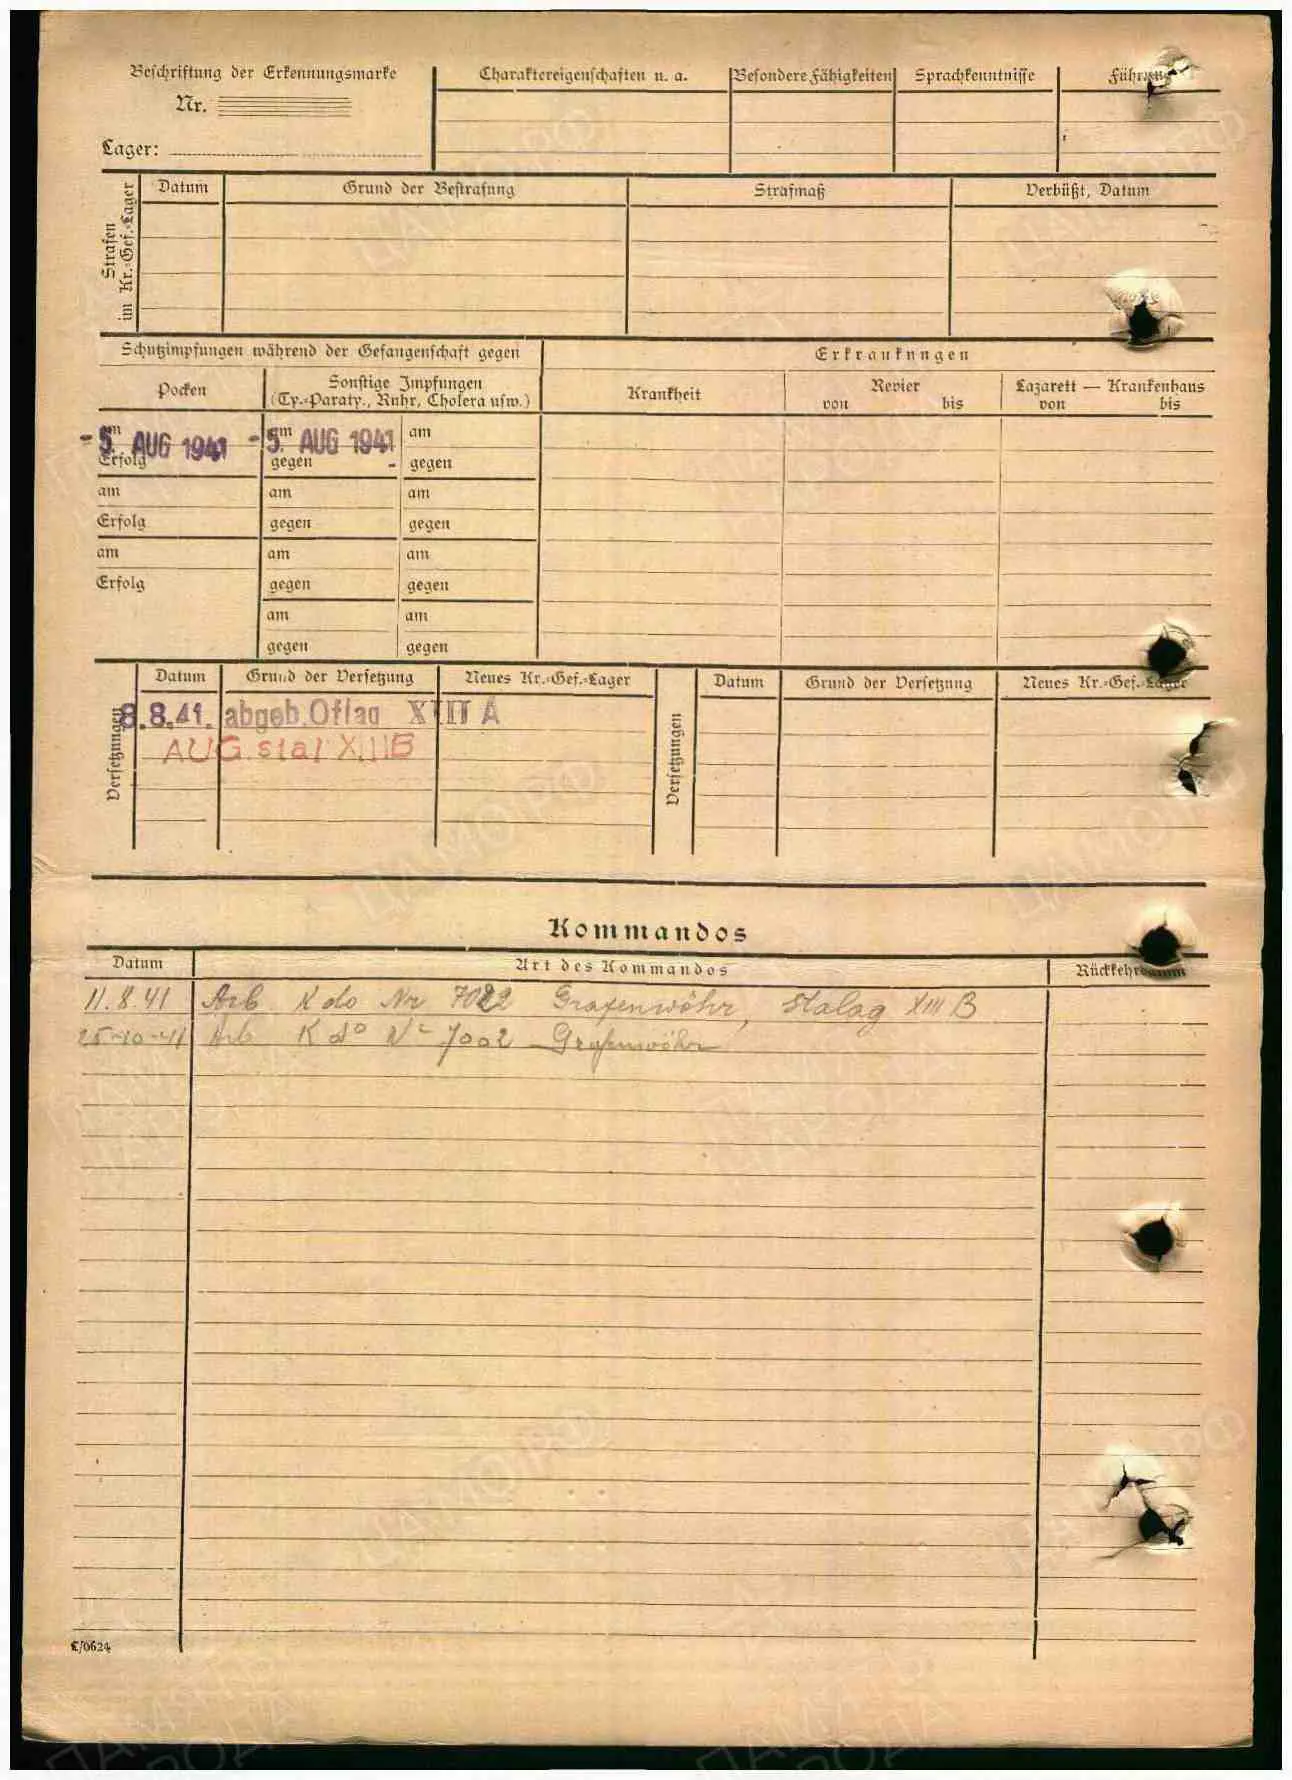 Beschriftung der Erkennungsmarke
Nr.
Lager:
Charaktereigenschaften u. a.
Besondere Fähigkeiten
Sprachkenntnisse
Führung
Strafen im Kr.-Gef.-Lager
Datum
Grund der Bestrafung
Strafmaß
Verbüßt, Datum
Schutzimpfungen während der Gefangenschaft gegen
Erkrankungen
Pocken
Sonstige Impfungen
(Ty.-Paraty., Ruhr, Cholera usw.)
Krankheit
Revier
von bis
Lazarett — Krankenhaus
von bis
am am am
- 5. AUG 1941 - 5. AUG 1941
Erfolg gegen gegen
am am am
Erfolg gegen gegen
am am am
Erfolg gegen gegen
am am
gegen gegen
Versetzungen
Datum Grund der Versetzung Neues Kr.-Gef.-Lager
8.8.41. abgeb. Oflag XIII A
AUG. stal XIIIB
Versetzungen
Datum Grund der Versetzung Neues Kr.-Gef.-Lager
Kommandos
Datum Art des Kommandos Rückkehrdatum
11.8.41 Arb Kdo Nr 7022 Grafenwöhr, Stalag XIII B
25-10-41 Arb Kdo Nr 7002 Grafenwöhr
£/0624
ПАМЯТЬ НАРОДА
ЦАМО.РФ